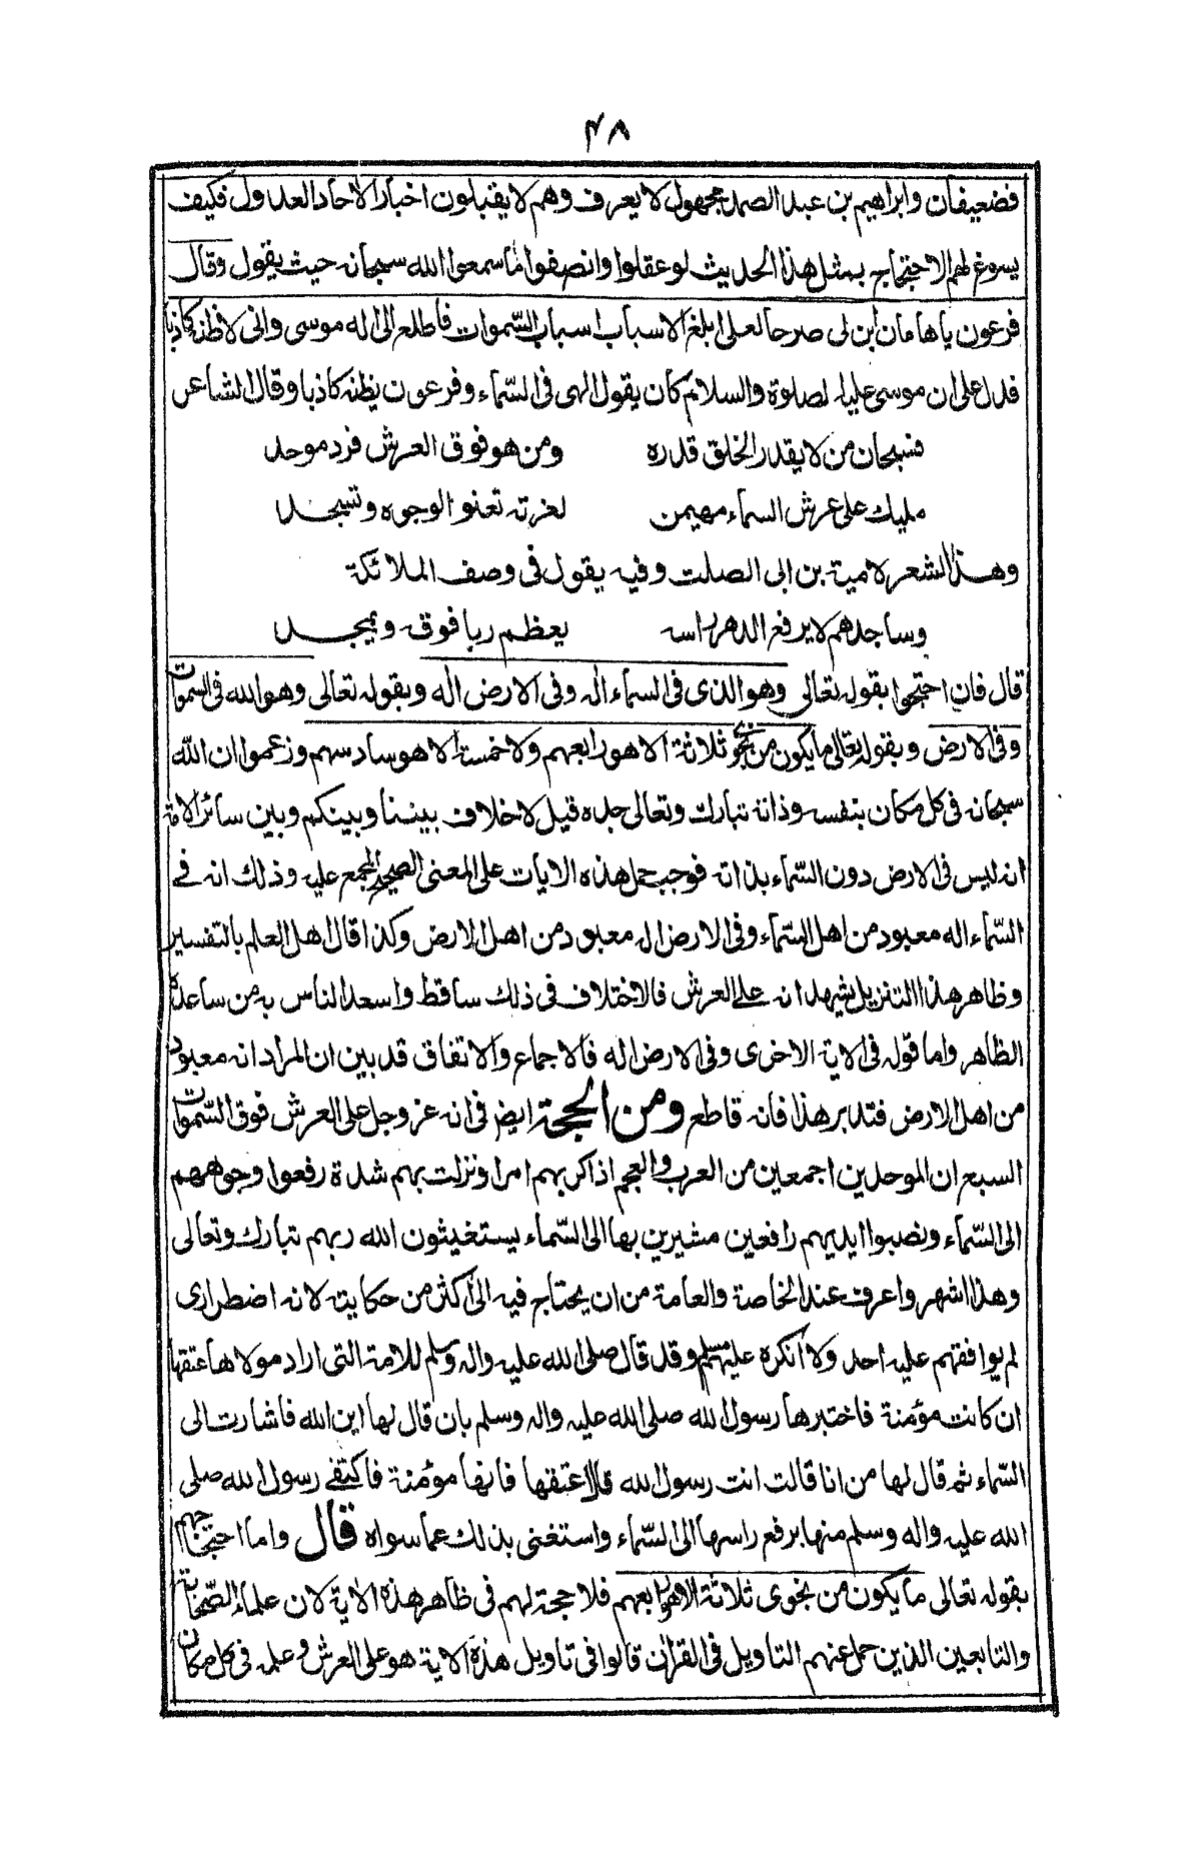 ٤٨
فضعيفان وابراهيم بن عبد الصمد مجهول لا يعرف وهم لا يقبلون اخبار الآحاد العدول فكيف
يسوغ لهم الاحتجاج بمثل هذا الحديث لو عقلوا وانصفوا ما سمعوا الله سبحانه حيث يقول وقال
فرعون يا هامان ابن لى صرحا لعلى ابلغ الاسباب اسباب السّموات فاطلع الى اله موسى وانى لاظنه كاذبا
فدل على ان موسى عليه لصلوة والسلام كان يقول الهى فى السّماء وفرعون يظنه كاذبا وقال الشاعر
فسبحان من لا يقدر الخلق قدره ومن هو فوق العرش فرد موحد
مليك على عرش السماء مهيمن لعزته تعنو الوجوه وتسجد
وهذا الشعر لامية بن ابى الصلت وفيه يقول فى وصف الملائكة
وساجدهم لا يرفع الدهر راسه يعظم ربا فوقه ويمجد
قال فان احتجوا بقوله تعالى وهو الذى فى السماء اله وفى الارض اله وبقوله تعالى وهو الله فى السموات
وفى الارض وبقوله تعالى ما يكون من نجوى ثلاثة الا هو رابعهم ولا خمسة الا هو سادسهم وزعموا ان الله
سبحانه فى كل مكان بنفسه وذاته تبارك وتعالى جده قيل لا خلاف بيننا وبينكم وبين سائر الامة
انه ليس فى الارض دون السّماء بذاته فوجب حمل هذه الايات على المعنى الصحيح المجمع عليه وذلك انه فے
السّماء اله معبود من اهل السّماء وفى الارض اله معبود من اهل الارض وكذا قال اهل العلم بالتفسير
وظاهر هذا التنزيل يشهد انه علے العرش فالاختلاف فى ذلك ساقط واسعد الناس به من ساعده
الظاهر واما قوله فى الاية الاخرى وفى الارض اله فالاجماع والاتفاق قد بين ان المراد انه معبود
من اهل الارض فتدبر هذا فانه قاطع ومن الحجة ايض فى انه عز وجل على العرش فوق السّموات
السبع ان الموحدين اجمعين من العرب والعجم اذا كربهم امر او نزلت بهم شدة رفعوا وجوههم
الى السّماء ونصبوا ايديهم رافعين مشيرين بها الى السّماء يستغيثون الله ربهم تبارك وتعالى
وهذا اشهر واعرف عند الخاصة والعامة من ان يحتاج فيه الى اكثر من حكايته لانه اضطرارى
لم يوافقهم عليه احد ولا انكره عليهم مسلم وقد قال صلى الله عليه واله وسلم للامة التى اراد مولاها عتقها
ان كانت مؤمنة فاختبرها رسول الله صلى الله عليه واله وسلم بان قال لها اين الله فاشارت الى
السّماء ثم قال لها من انا قالت انت رسول الله قال اعتقها فانها مؤمنة فاكتفے رسول الله صلى
الله عليه واله وسلم منها برفع راسها الى السّماء واستغنى بذلك عما سواه قال واما احتجاجهم
بقوله تعالى ما يكون من نجوى ثلاثة الا هو رابعهم فلا حجة لهم فى ظاهر هذه الاية لان علماء الصّحابة
والتابعين الذين حمل عنهم التاويل فى القران قالوا فى تاويل هذه الاية هو على العرش وعلمه فى كل مكان